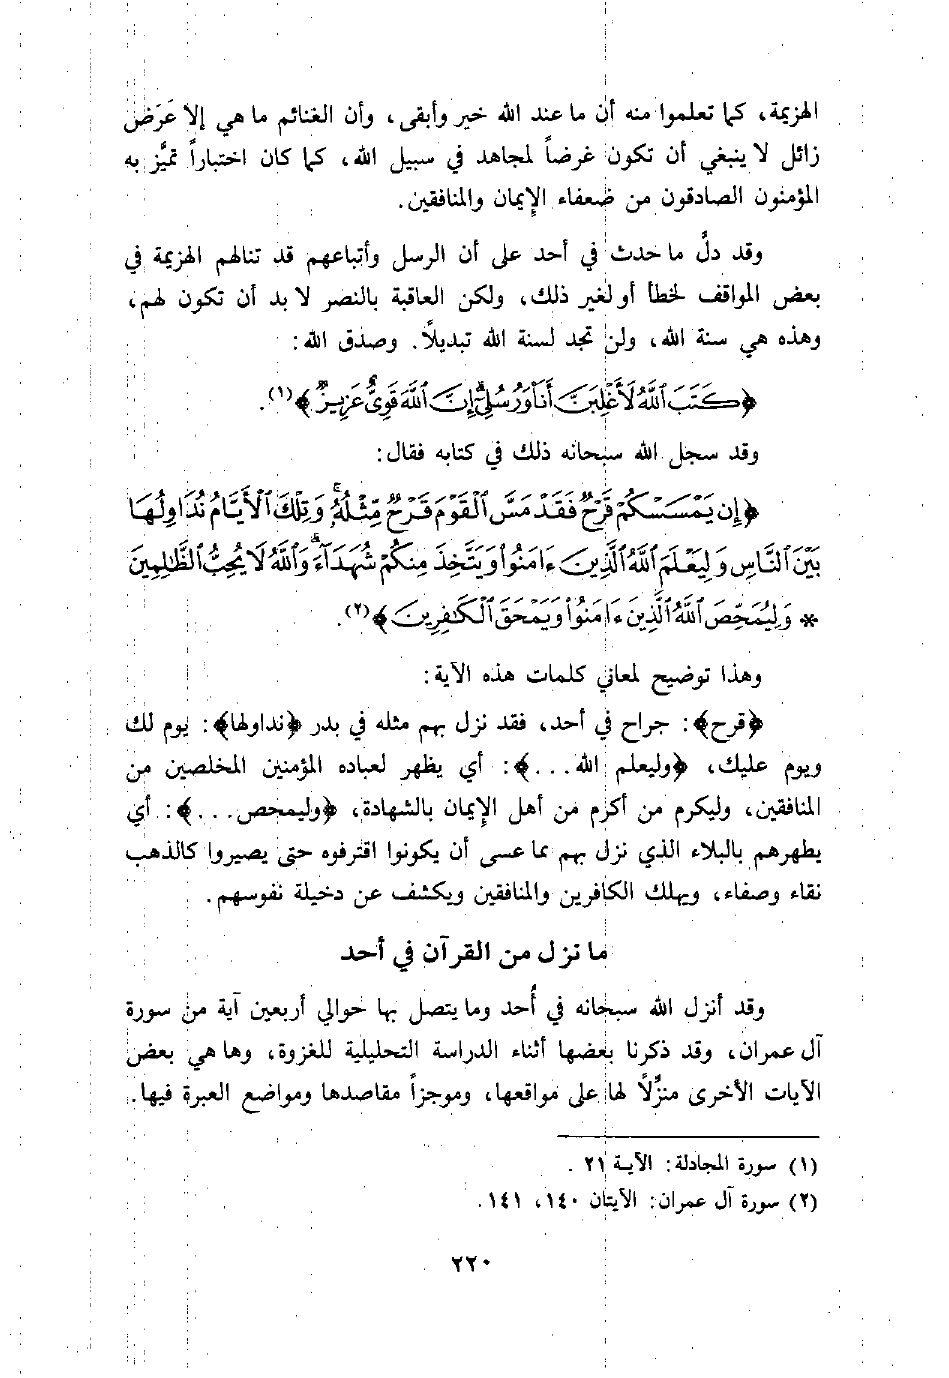 الهزيمة، كما تعلموا منه أن ما عند الله خير وأبقى، وأن الغنائم ما هي إلا عَرَض
زائل لا ينبغي أن تكون غرضاً لمجاهد في سبيل الله، كما كان اختباراً تميَّز به
المؤمنون الصادقون من ضعفاء الإيمان والمنافقين.
وقد دلَّ ما حدث في أحد على أن الرسل وأتباعهم قد تنالهم الهزيمة في
بعض المواقف لخطأ أو لغير ذلك، ولكن العاقبة بالنصر لا بد أن تكون لهم،
وهذه هي سنة الله، ولن تجد لسنة الله تبديلاً. وصدق الله:
﴿كَتَبَ ٱللَّهُ لَأَغْلِبَنَّ أَنَا۠ وَرُسُلِىٓ ۚ إِنَّ ٱللَّهَ قَوِىٌّ عَزِيزٌ﴾(١).
وقد سجل الله سبحانه ذلك في كتابه فقال:
﴿إِن يَمْسَسْكُمْ قَرْحٌ فَقَدْ مَسَّ ٱلْقَوْمَ قَرْحٌ مِّثْلُهُۥ ۚ وَتِلْكَ ٱلْأَيَّامُ نُدَاوِلُهَا
بَيْنَ ٱلنَّاسِ وَلِيَعْلَمَ ٱللَّهُ ٱلَّذِينَ ءَامَنُوا۟ وَيَتَّخِذَ مِنكُمْ شُهَدَآءَ ۗ وَٱللَّهُ لَا يُحِبُّ ٱلظَّٰلِمِينَ
* وَلِيُمَحِّصَ ٱللَّهُ ٱلَّذِينَ ءَامَنُوا۟ وَيَمْحَقَ ٱلْكَٰفِرِينَ﴾(٢).
وهذا توضيح لمعاني كلمات هذه الآية:
﴿قرح﴾: جراح في أحد، فقد نزل بهم مثله في بدر ﴿نداولها﴾: يوم لك
ويوم عليك، ﴿وليعلم الله...﴾: أي يظهر لعباده المؤمنين المخلصين من
المنافقين، وليكرم من أكرم من أهل الإيمان بالشهادة، ﴿وليمحص...﴾: أي
يطهرهم بالبلاء الذي نزل بهم مما عسى أن يكونوا اقترفوه حتى يصيروا كالذهب
نقاء وصفاء، ويهلك الكافرين والمنافقين ويكشف عن دخيلة نفوسهم.
ما نزل من القرآن في أحد
وقد أنزل الله سبحانه في أُحد وما يتصل بها حوالي أربعين آية من سورة
آل عمران، وقد ذكرنا بعضها أثناء الدراسة التحليلية للغزوة، وها هي بعض
الآيات الأخرى منزِّلاً لها على مواقعها، وموجزاً مقاصدها ومواضع العبرة فيها.
(١) سورة المجادلة: الآية ٢١.
(٢) سورة آل عمران: الآيتان ١٤٠، ١٤١.
٢٢٠